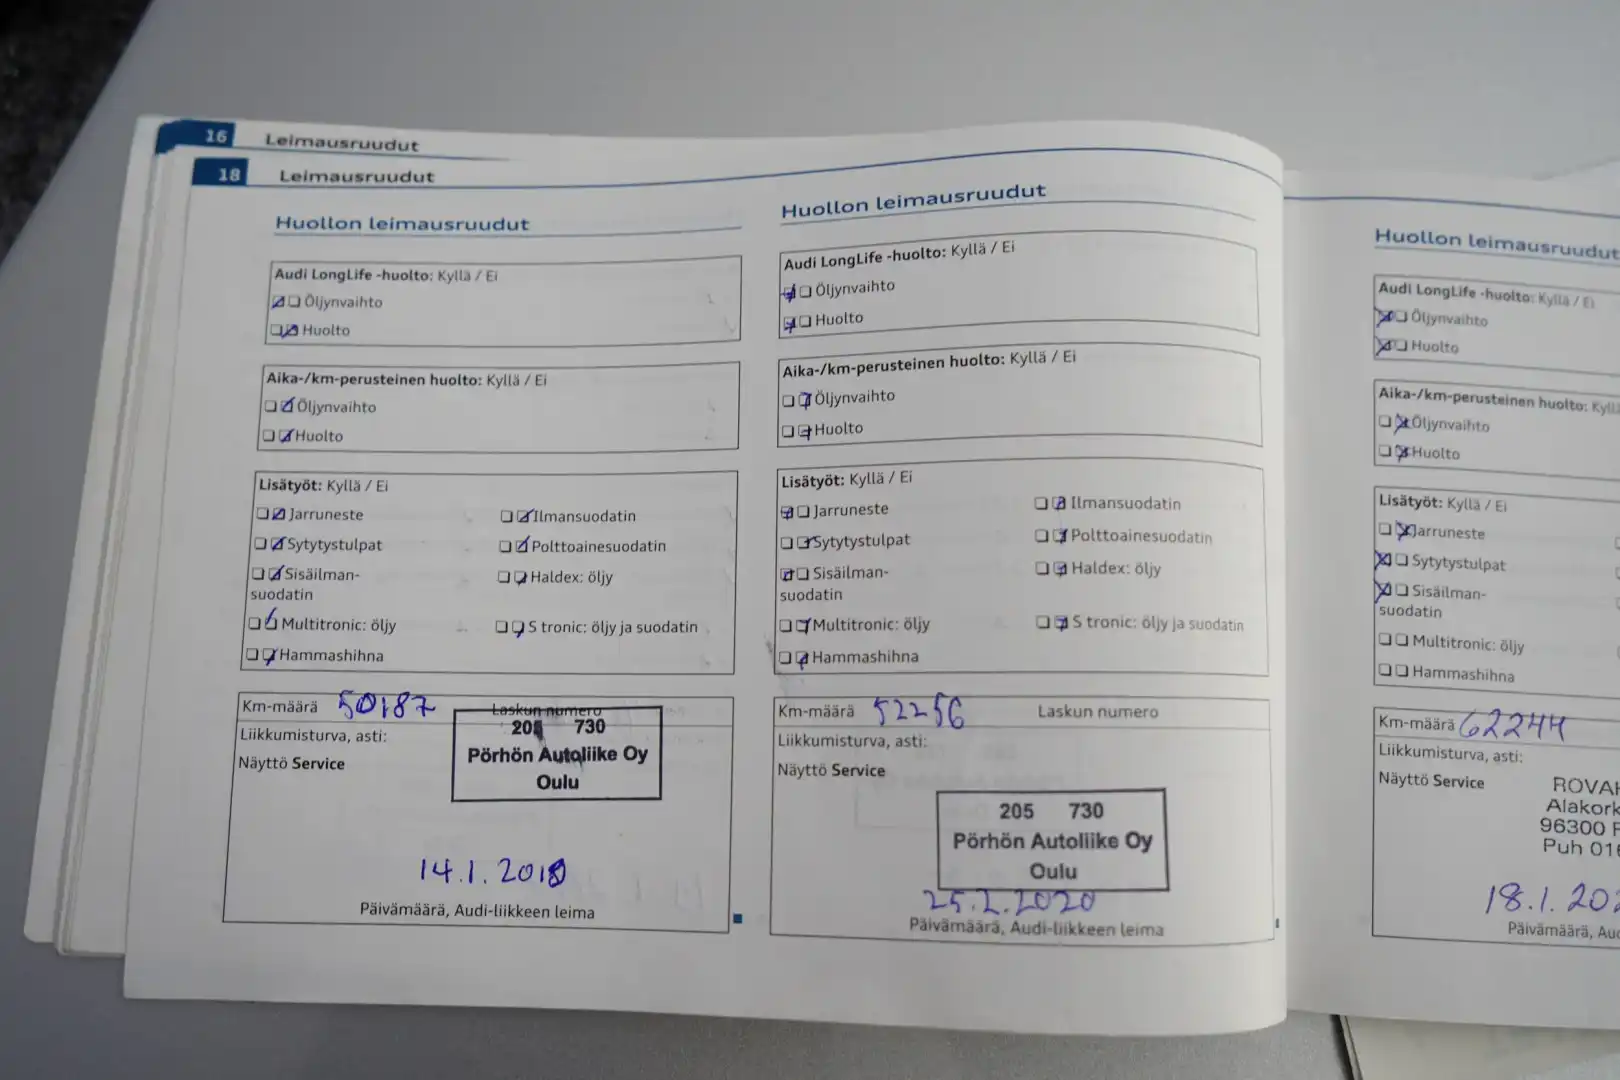 16 Leimausruudut
18 Leimausruudut
Huollon leimausruudut
Audi LongLife -huolto: Kyllä / Ei
Öljynvaihto
Huolto
Aika-/km-perusteinen huolto: Kyllä / Ei
Öljynvaihto
Huolto
Lisätyöt: Kyllä / Ei
Jarruneste Ilmansuodatin
Sytytystulpat Polttoainesuodatin
Sisäilman- Haldex: öljy
suodatin
Multitronic: öljy S tronic: öljy ja suodatin
Hammashihna
Km-määrä 50187 Laskun numero
Liikkumisturva, asti:
Näyttö Service
205 730
Pörhön Autoliike Oy
Oulu
14.1.
Päivämäärä, Audi-liikkeen leima
Huollon leimausruudut
Audi LongLife -huolto: Kyllä / Ei
Öljynvaihto
Huolto
Aika-/km-perusteinen huolto: Kyllä / Ei
Öljynvaihto
Huolto
Lisätyöt: Kyllä / Ei
Jarruneste Ilmansuodatin
Sytytystulpat Polttoainesuodatin
Sisäilman- Haldex: öljy
suodatin
Multitronic: öljy S tronic: öljy ja suodatin
Hammashihna
Km-määrä 52256 Laskun numero
Liikkumisturva, asti:
Näyttö Service
205 730
Pörhön Autoliike Oy
Oulu
25.2.2020
Päivämäärä, Audi-liikkeen leima
Huollon leimausruudut
Audi LongLife -huolto: Kyllä / Ei
Öljynvaihto
Huolto
Aika-/km-perusteinen huolto: Kyll
Öljynvaihto
Huolto
Lisätyöt: Kyllä / Ei
Jarruneste
Sytytystulpat
Sisäilman-
suodatin
Multitronic: öljy
Hammashihna
Km-määrä 62244
Liikkumisturva, asti:
Näyttö Service
ROVA
Alakork
96300
Puh 016
18.1. 202
Päivämäärä, Au